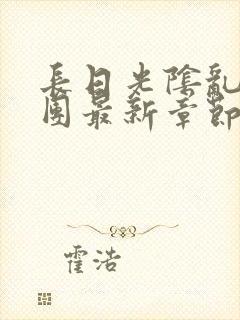 長日光陰亂
團最新章節
霍浩